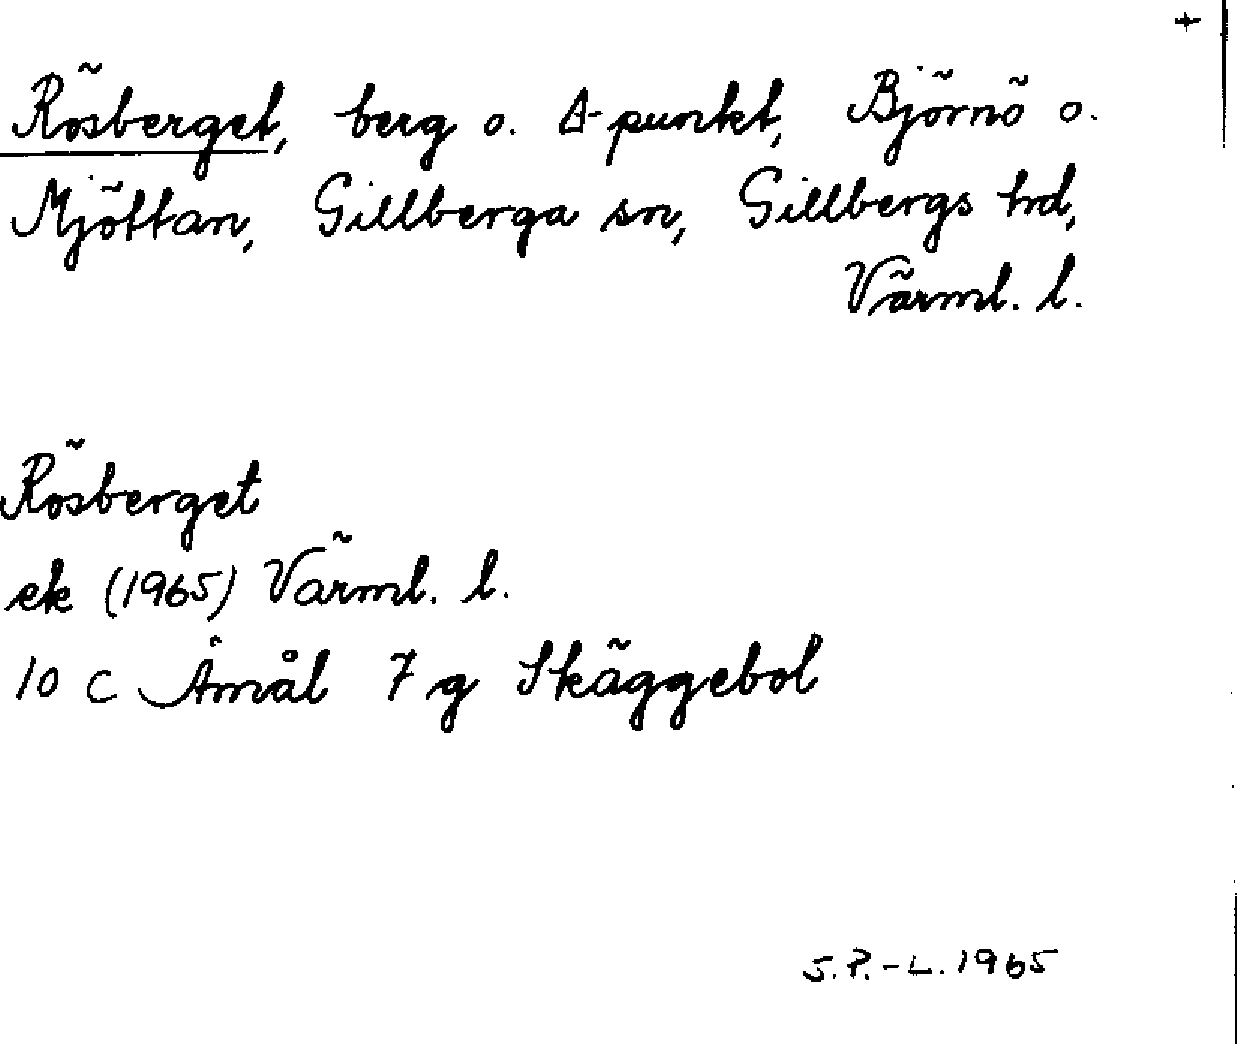 +
Rösberget, berg o. Δ-punkt, Björnö o.
Mjöttan, Gillberga sn, Gillbergs hd,
Värml. l.
Rösberget
ek (1965) Värml. l.
10 c Åmål 7 g Skäggebol
S.P.-L. 1965